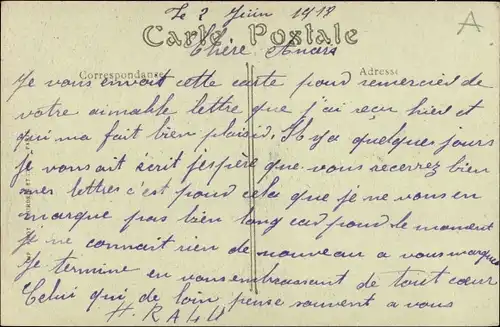 Le 2 Juin 1918
Carte Postale
Chère
Correspondance
Adresse
Je vous envoit cette carte pour remercier de
votre aimable lettre que j'ai reçu hier et
qui ma fait bien plaisir, Il y a quelques jours
je vous ait écrit j'espère que vous recevrez bien
mes lettres c'est pour cela que je ne vous en
marque pas bien long car pour le moment
je ne connait rien de nouveau a vous marquer
Je termine en vous embrassant de tout cœur
Celui qui de loin pense souvent a vous
A